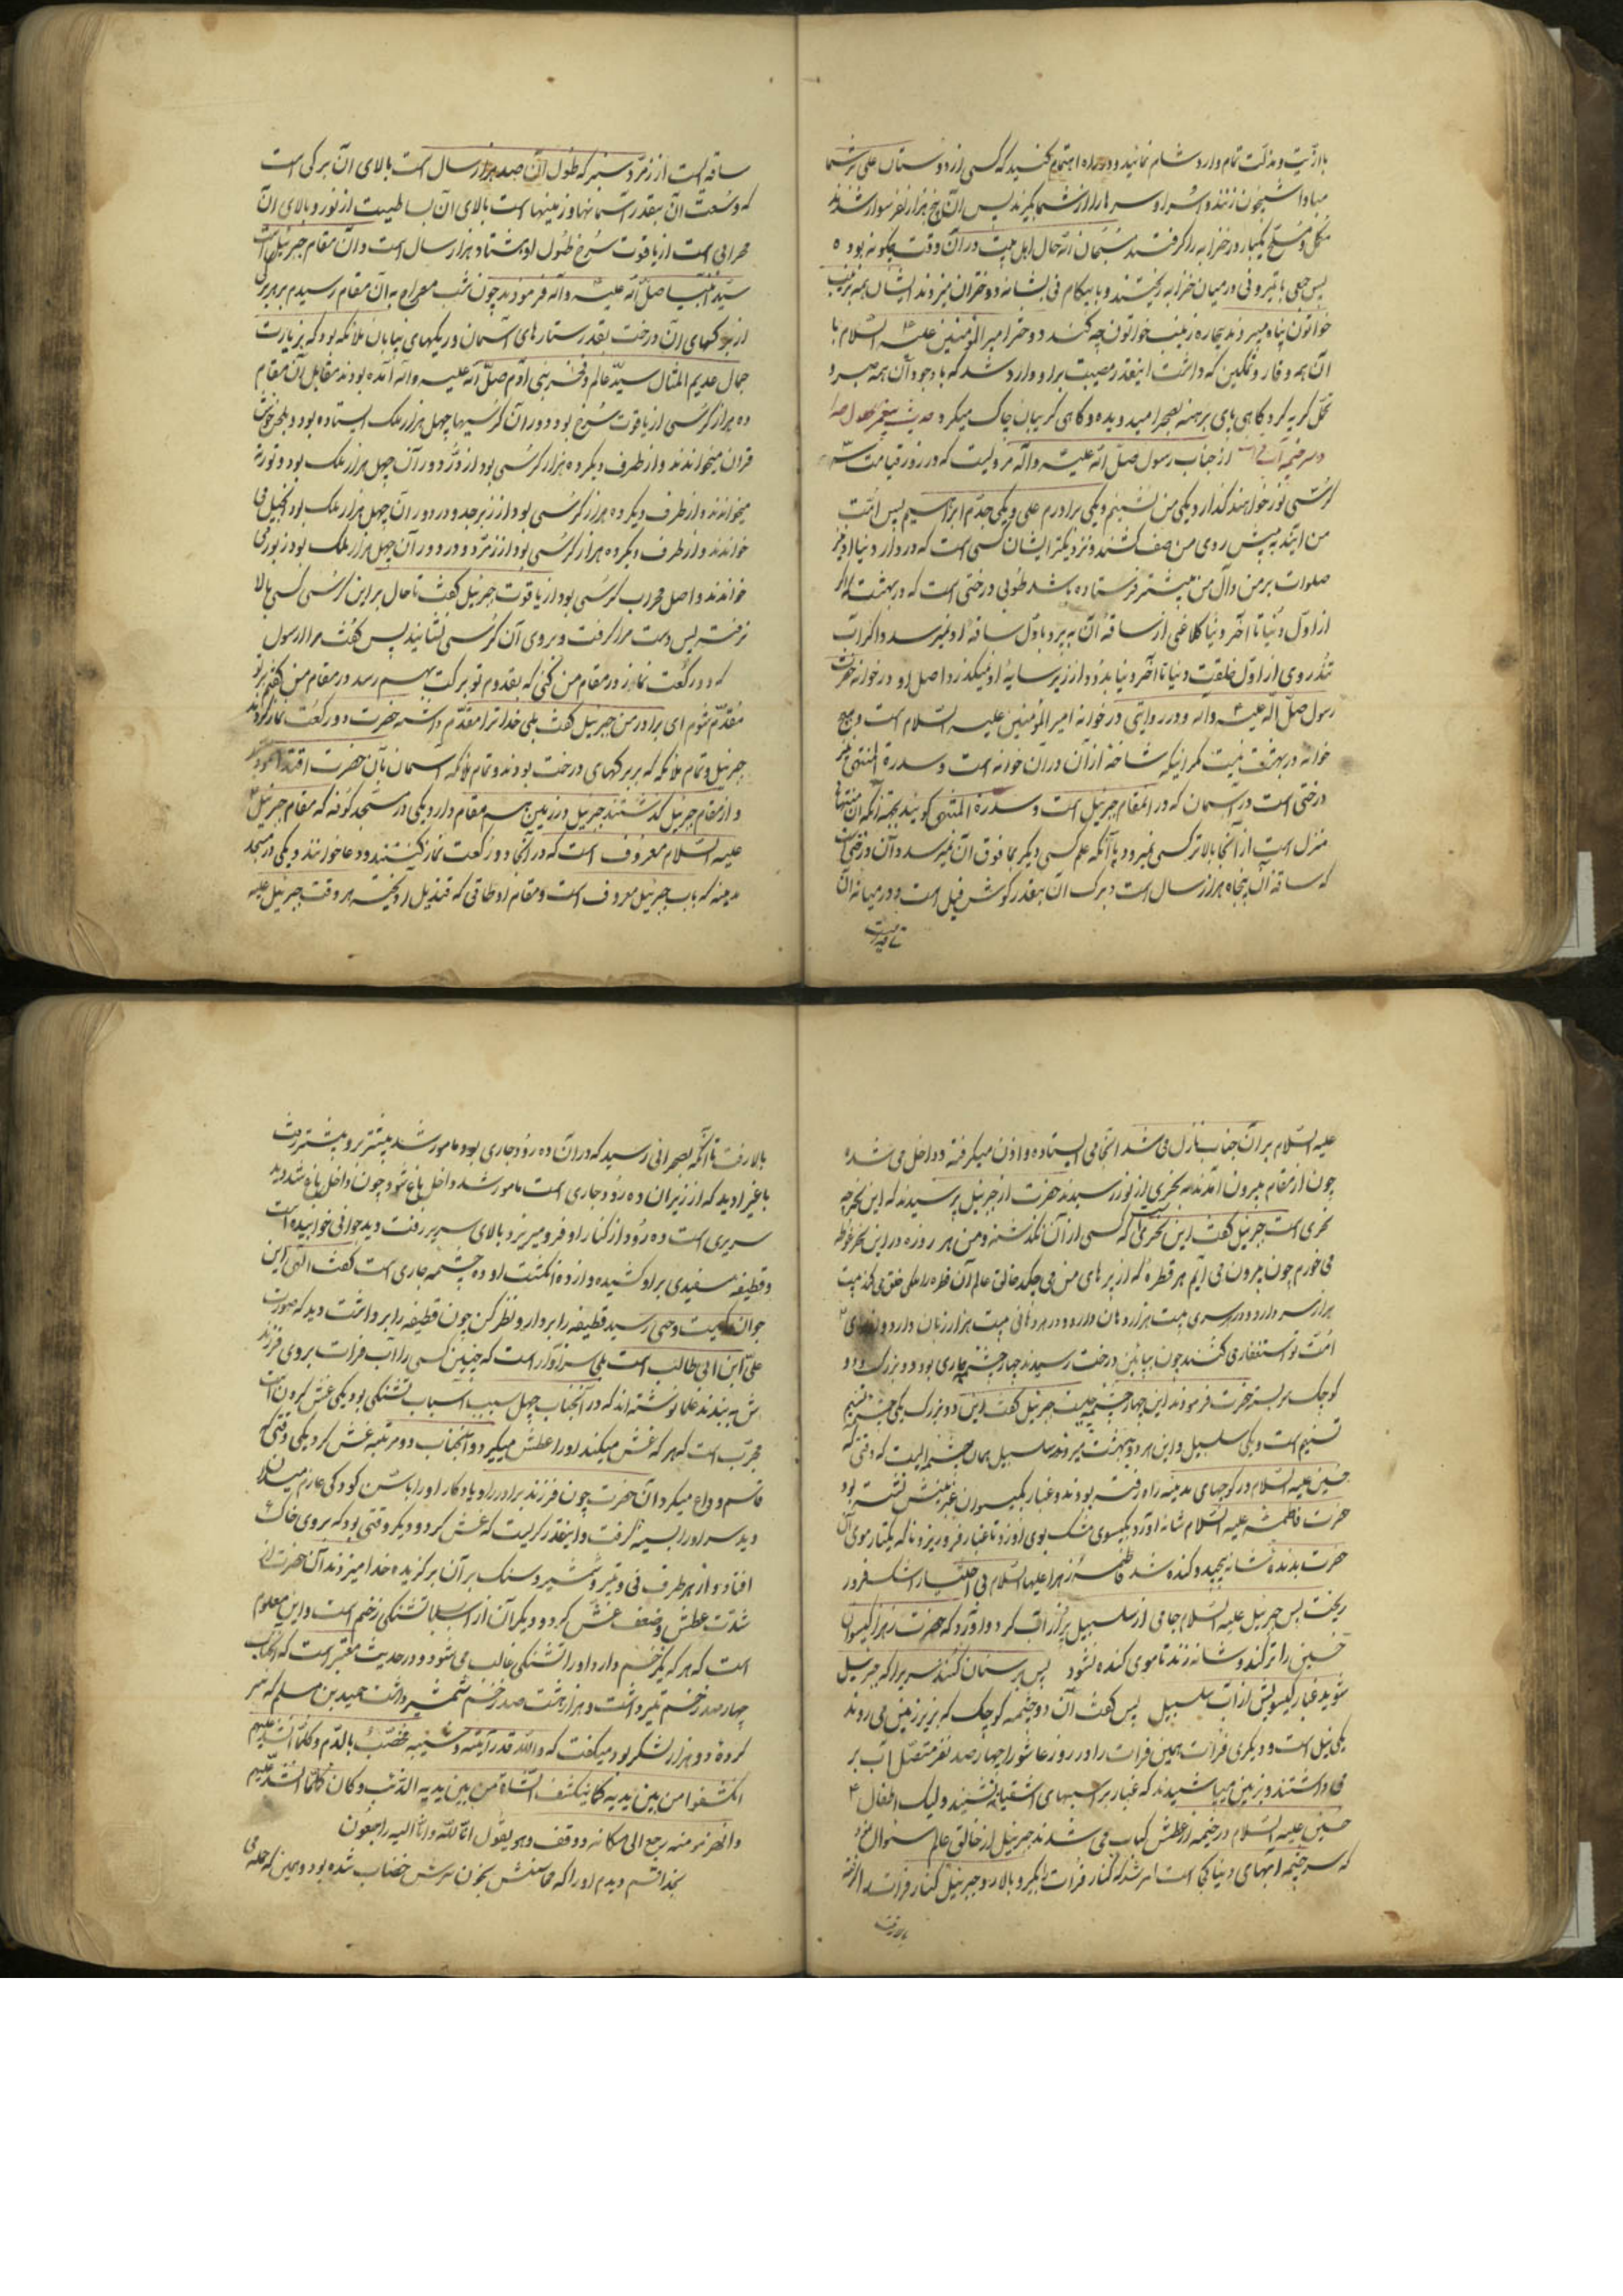 با اذیت و مذلت تمام وارد شام نمائید و در راه اهتمام کنید که کسی از دوستان علی بر شما
مبادا شبیخون زنند و اسرا و سرها را از شما بگیرند پس آن پنج هزار نفر سوار شدند
مکمل و مسلح یکبار در خرابه را گرفتند مسلمانان حال اهل بیت در آن وقت چگونه بود
پس جمعی با تیر و نی در میان خرابه ریختند و بابیکام نی بشانه دختران میزدند ایشان همه بزینب
خواتون پناه میبردند بیچاره زینب خواتون چه کند دختر امیر المومنین علیه السلام با
آن همه وقار و تمکین که داشت اینقدر مصیبت بر او وارد شد که با وجود آن همه صبر و
تحمل گریه کرد گاهی پای برهنه بصحرا میدویده و گاهی گریبان چاک میکرد حدیث
از جناب رسول صلی الله علیه و آله مرویست که در روز قیامت سه
کرسی نور خواهند گذارد یکی من نشینم و یکی برادرم علی و یکی جدم ابراهیم پس امت
من آیند به پیش روی من صف کشند و نزدیکتر ایشان کسی است که در دار دنیا
صلوات بر من و آل من بیشتر فرستاده باشد طوبی درختی است که در بهشت اگر
از اول دنیا تا آخر دنیا کلاغی از ساقه آن بپرد باول ساقه او نمیرسد و اگر اسب
تندروی از اول خلقت دنیا تا آخر دنیا بدود از زیر سایه او نمیگذرد و اصل او در خوانه حضرت
رسول صلی الله علیه و اله و در روایتی در خوانه امیر المومنین علیه السلام است و هیچ
خوانه در بهشت نیست مگر اینکه شاخه از آن در آن خوانه است و سدرة المنتهی نیز
درختی است در آسمان که در مقام جبرئیل است و سدرة المنتهی گویند بجهة آنکه آن منتهای
منزل است از آنجا بالاتر کسی نمیرود یا آنکه علم کسی دیگر بمافوق آن نمیرسد و آن درختی است
که ساقه آن پنجاه هزار سال است و برگ آن بقدر گوش فیل است و در میانه آن
ساقه ایست از زمرد سبز که طول آن صد هزار سال است بالای آن برگی است
که وسعت آن بقدر آسمانها و زمینها است بالای آن بساطیست از نور و بالای آن
محرابی است از یاقوت سرخ طول او هشتاد هزار سال است و آن مقام جبرئیل است
سید انبیا صلی الله علیه و آله فرمودند چون شب معراج به آن مقام رسیدم بر هر برگی
از برگهای آن درخت بقدر ستارهای آسمان و ریگهای بیابان ملائکه بود که بزیارت
جمال عدیم المثال سید عالم و فخر بنی آدم صلی الله علیه و اله آمده بودند مقابل آن مقام
ده هزار کرسی از یاقوت سرخ بود و دور آن کرسیها چهل هزار ملک ایستاده بود و بلحن خوش
قران میخواندند و از طرف دیگر ده هزار کرسی بود از در و دور آن چهل هزار ملک بود و توریة
میخواندند و از طرف دیگر ده هزار کرسی بود از زبرجد و در دور آن چهل هزار ملک بود انجیل می
خواندند و از طرف دیگر ده هزار کرسی بود از زمرد و در دور آن چهل هزار ملک بود زبور می
خواندند و اصل محراب کرسی بود از یاقوت جبرئیل گفت تا حال بر این کرسی کسی بالا
نرفته پس دست مرا گرفت و بروی آن کرسی نشانید پس گفت مرا یا رسول
که دو رکعت نماز در مقام من کنی که بقدوم تو برکت بهم رسد در مقام من گفتم بر تو
مقدم شوم ای برادر من جبرئیل گفت بلی خدا ترا مقدم داشته حضرت دو رکعت نماز کردند
جبرئیل و تمام ملائکه که بر برگهای درخت بودند و تمام ملائکه آسمان بآن حضرت اقتدا نمودند
و از مقام جبرئیل گذشتند جبرئیل در زمین سه مقام دارد یکی در مسجد کوفه که مقام جبرئیل
علیه السلام معروف است که در آنجا دو رکعت نماز کنند و دعا خوانند و یکی در مسجد
مدینه که بباب جبرئیل معروف است و مقام او طاقی که قندیل آویخته هر وقت جبرئیل علیه
علیه السلام بر آن جناب نازل می شد آنجا می ایستاده و اذن میگرفته و داخل می شده
چون از مقام بیرون آمدند به بحری از نور رسیدند حضرت از جبرئیل پرسیدند که این بحر چه
بحری است جبرئیل گفت این بحری است که کسی از آن نگذشته و من هر روزه در این بحر غوطه
می خورم چون بیرون می آیم هر قطره که از پرهای من می چکد خالق عالم از آن قطره ملکی خلق می کند بیست
هزار سر دارد و در هر سری بیست هزار دهان دارد و در هر دهانی بیست هزار زبان دارد و برای
امت تو استغفار می کنند چون بپائین درخت رسیدند چهار چشمه جاری بود دو بزرگ و دو
کوچک سر بسته حضرت فرمودند این چهار چشمه چیست جبرئیل گفت این دو بزرگ یکی چشمه تسنیم
تسنیم است و یکی سلسبیل و این هر دو ببهشت میروند سلسبیل همان چشمه ایست که وقتی که
حسین علیه السلام در کوچهای مدینه راه رفته بودند و غبار بگیسوان عنبرینش نشسته بود
حضرت فاطمه علیه السلام شانه آورد بگیسوی مشک بوی او زد تا غبار فرو ریزد ناگه یکتار موی آن
حضرت بدندۀ شانه پیچید و کنده شد فاطمه زهرا علیها السلام بی اختیار اشک فرو
ریخت پس جبرئیل علیه السلام جامی از سلسبیل پر از آب کرد و آورد که حضرت زهرا گیسوان
حسین را تر کند و شانه زند تا موی کنده نشود پس برسنان کنند سریرا که جبرئیل
شوید غبار گیسویش از آب سلسبیل پس گفت آن دو چشمه کوچک که بزیر زمین می روند
یکی نیل است و دیگری فرات همین فرات را در روز عاشورا چهار صد نفر متصل آب بر
می داشتند و بزمین میپاشیدند که غبار بر اسبهای اشقیا ننشیند و لیک اطفال
حسین علیه السلام در خیمه از عطش کباب می شدند جبرئیل از خالق عالم سئوال نمود
که سرچشمه آبهای دنیا کجا است امر شد که کنار فرات را بگیر و بالا رو جبرئیل کنار فرات را گرفته
بالا رفت
بالا رفت تا آنکه بصحرائی رسید که در آن ده رود جاری بود مامور شد بیشتر برو بیشتر رفت
باغی را دید که از زیر آن ده رود جاری است مامور شد داخل باغ شو چون داخل باغ شد دید
سریری است ده رود از کنار او فرو میریزد بالای سریر رفت دید جوانی خوابیده است
و قطیفه سفیدی بر او کشیده و از ده انگشت او ده چشمه جاری است گفت الهی این
جوان کیست وحی رسید قطیفه را بردار و نظر کن چون قطیفه را برداشت دید که صورت
علی ابن ابی طالب است بلی سزاوار است که چنین کسی را آب فرات بروی فرزند
ش ببندند علما نوشته اند که در آنجناب چهل سبب اسباب تشنگی بود یکی غش کردن است
مجرب است که هر که غش میکند او را عطش میگیرد و آنجناب دو مرتبه غش کرد یکی وقتی که
قاسم وداع میکرد آن حضرت چون فرزند برادر و یادگار او را باین کودکی عازم میدان
دید سر او را بسینه گرفت و اینقدر گریست که غش کرد و دیگر وقتی بود که بروی خاک
افتاد و از هر طرف نی و تیر و شمشیر و سنگ بر آن برگزیده خدا میزدند آن حضرت از
شدت عطش و ضعف غش کرد و دیگر آن از اسباب تشنگی زخم است و این معلوم
است که هر که یکزخم دارد او را تشنگی غالب می شود و در حدیث معتبر است که آنجناب
چهار صد زخم تیر داشت و هزار و شصت صد زخم شمشیر داشت حمید بن مسلم که سر
کردۀ دو هزار لشکر بود میگفت که والله قد رایته و شیبه مخضب بالدم و کلما اشتد علیهم
انکشفوا من بین یدیه کما ینکشف الشاة من بین یدیه الذئب و کان کلما اشتد علیهم
و انهزموا منه رجع الی مکانه و وقف و هو یقول انا لله و انا الیه راجعون
بخدا قسم دیدم او را که محاسنش بخون سرش خضاب شده بود و همین که حمله می